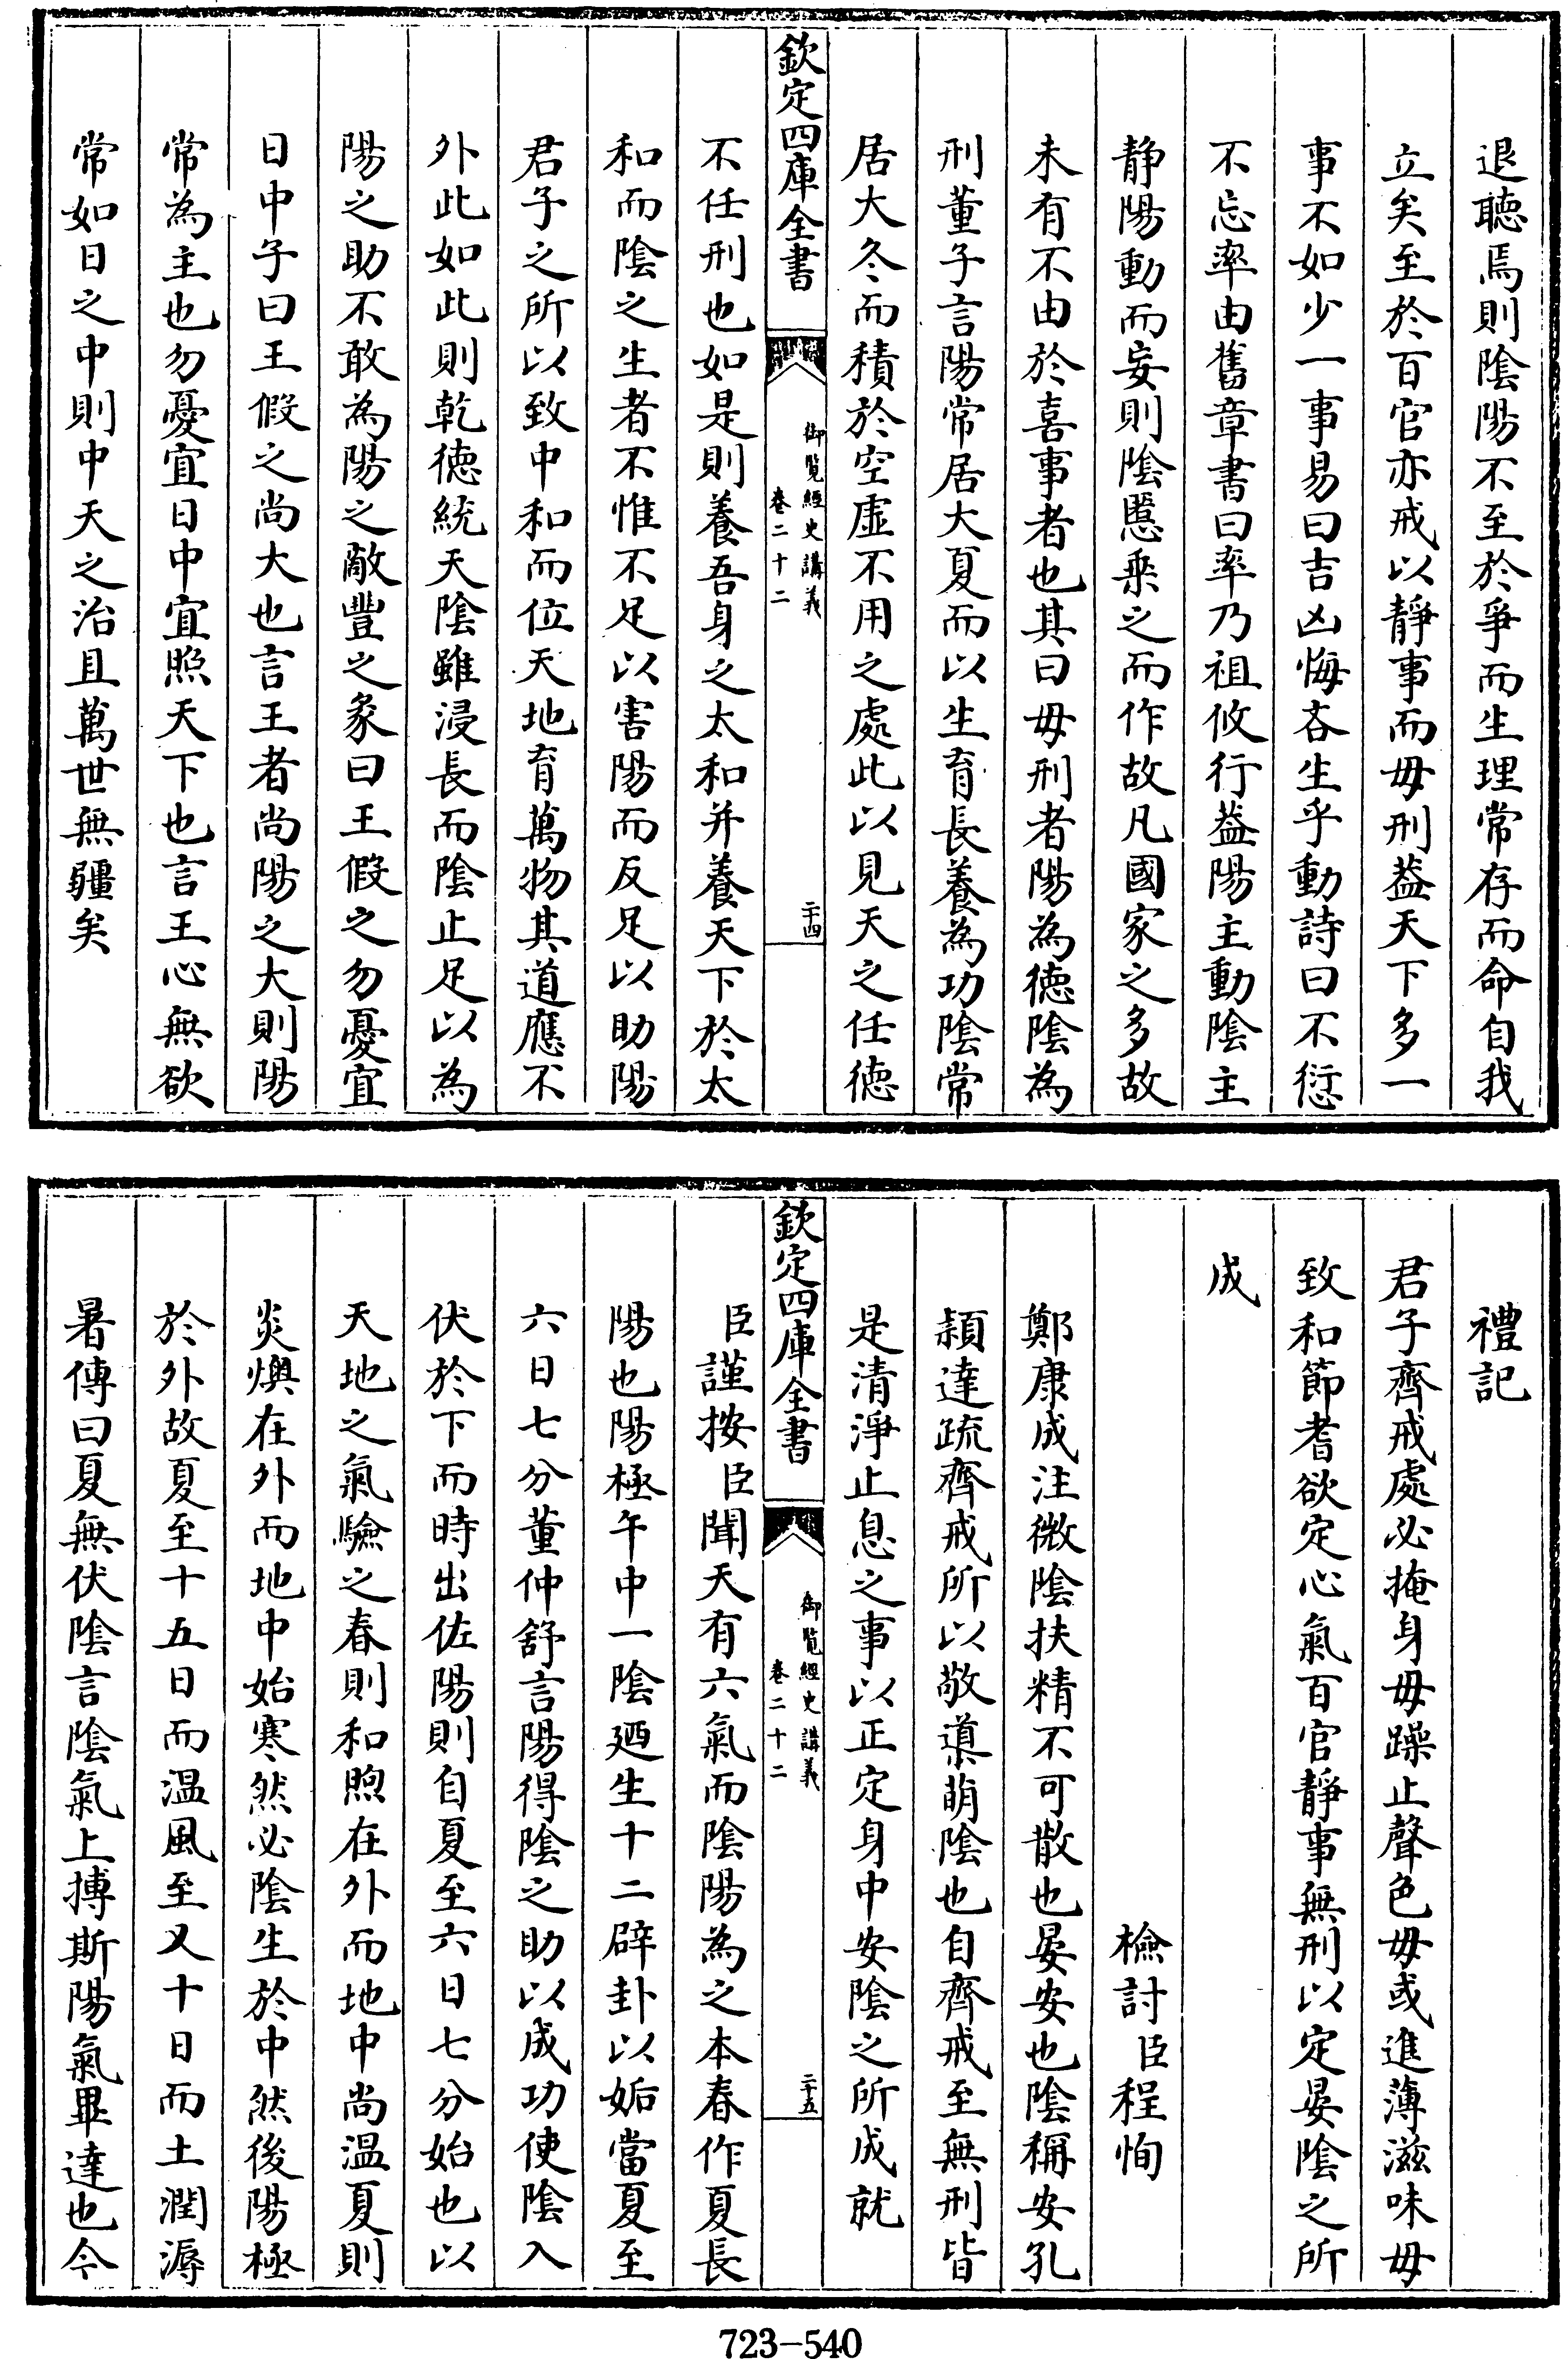 退聽焉則隂陽不至於爭而生理常存而命自我
立矣至於百官亦戒以靜事而毋刑葢天下多一
事不如少一事易曰吉凶悔吝生乎動詩曰不愆
不忘率由舊章書曰率乃祖攸行葢陽主動隂主
静陽動而妄則隂慝乘之而作故凡國家之多故
未有不由於喜事者也其曰毋刑者陽為徳隂為
刑董子言陽常居大夏而以生育長養為功隂常
居大冬而積於空虚不用之處此以見天之任徳
欽定四庫全書
御覧經史講義
卷二十二
二十四
不任刑也如是則養吾身之太和并養天下於太
和而隂之生者不惟不足以害陽而反足以助陽
君子之所以致中和而位天地育萬物其道應不
外此如此則乾徳統天隂雖浸長而隂止足以為
陽之助不敢為陽之敵豐之象曰王假之勿憂宜
日中子曰王假之尚大也言王者尚陽之大則陽
常為主也勿憂宜日中宜照天下也言王心無欲
常如日之中則中天之治且萬世無疆矣
禮記
君子齊戒處必掩身毋躁止聲色毋或進薄滋味毋
致和節耆欲定心氣百官靜事無刑以定晏隂之所
成
檢討臣程恂
鄭康成注微隂扶精不可散也晏安也隂稱安孔
頴達疏齊戒所以敬導萌隂也自齊戒至無刑皆
是清淨止息之事以正定身中安隂之所成就
欽定四庫全書
御覧經史講義
卷二十二
二十五
臣謹按臣聞天有六氣而隂陽為之本春作夏長
陽也陽極午中一隂廼生十二辟卦以姤當夏至
六日七分董仲舒言陽得隂之助以成功使隂入
伏於下而時出佐陽則自夏至六日七分始也以
天地之氣驗之春則和煦在外而地中尚温夏則
炎燠在外而地中始寒然必隂生於中然後陽極
於外故夏至十五日而温風至又十日而土潤溽
暑傳曰夏無伏隂言隂氣上摶斯陽氣畢達也今
723-540